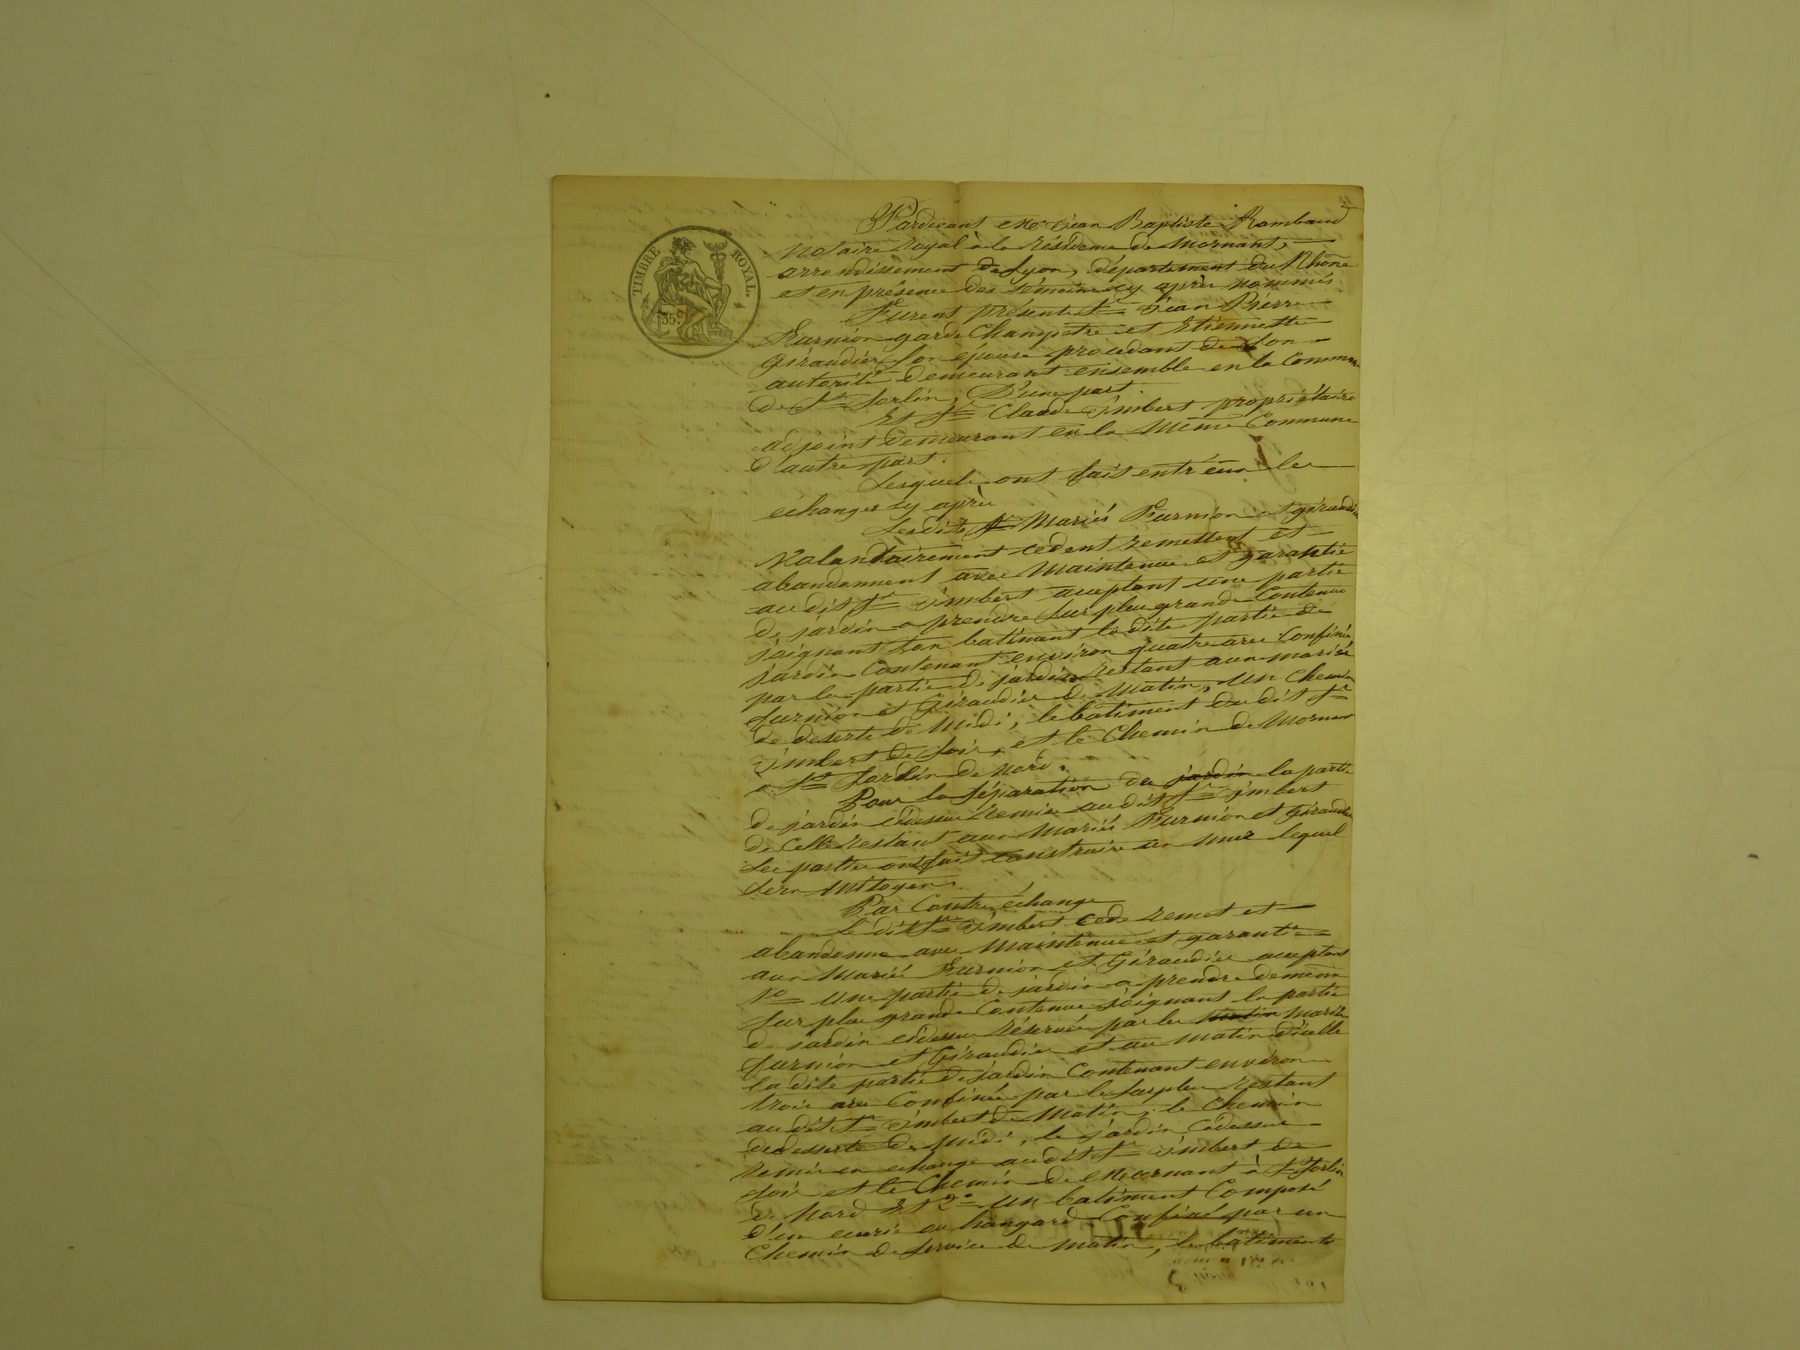 TIMBRE ROYAL.
35c
Pardevant Me Jean Baptiste Rambaud
Notaire Royal à la résidence de Mornant,
arrondissement de Lyon, département du Rhône
et en présence des témoins cy après nommés
Furent présents Jean Pierre
Furnion garde Champetre et Etiennette
Giraudier son épouse procedant de Son
autorité demeurant ensemble en la Commune
de St Sorlin, D'une part.
Et Sr Claude Imbert propriétaire
adjoint demeurant en la Même Commune
d'autre part.
Lesquels ont fait entr'eux les
échanges cy après
Les dits Mariés Furnion et Giraudier
Volontairement cedent remettent et
abandonnent avec Maintenue et garantie
au dit Sr Imbert acceptant une partie
de jardin a prendre Sur plus grande Contenue
joignant Son batiment la dite partie de
jardin Contenant environ quatre ares Confinée
par la partie de jardin restant aux mariés
furnion et Giraudier de Matin, un Chemin
de deserte de Midi, le batiment du dit Sr
Imbert de Soir, et le Chemin de Mornant
a St Sorlin de Nord.
Pour la Séparation du jardin la partie
de jardin cidessus remise au dit Sr Imbert
de Celle restant aux Mariés Furnion et Giraudier
les parties ont fait construire un mur lequel
Sera Mitoyen.
Par Contre échange
Le dit Sr Imbert cede remet et
abandonne avec Maintenue et garantie
aux Mariés Furnion et Giraudier acceptant
1o Une partie de jardin a prendre de même
Sur plus grande Contenue joignant la partie
de jardin cidessus réservée par les matin Mariés
furnion et Giraudier et au matin d'icelle
la dite partie de jardin Contenant environ
trois ares Confinée par le Surplus restant
au dit Sr Imbert de Matin, le Chemin
de desserte de midi, le jardin cidessus
remis en echange au dit Sr Imbert de
Soir et le Chemin de Mornant à St Sorlin
de Nord Et 2o Un batiment Composé
d'un ecurie ou hangard Confiné par un
Chemin de Service de Matin, les batiments